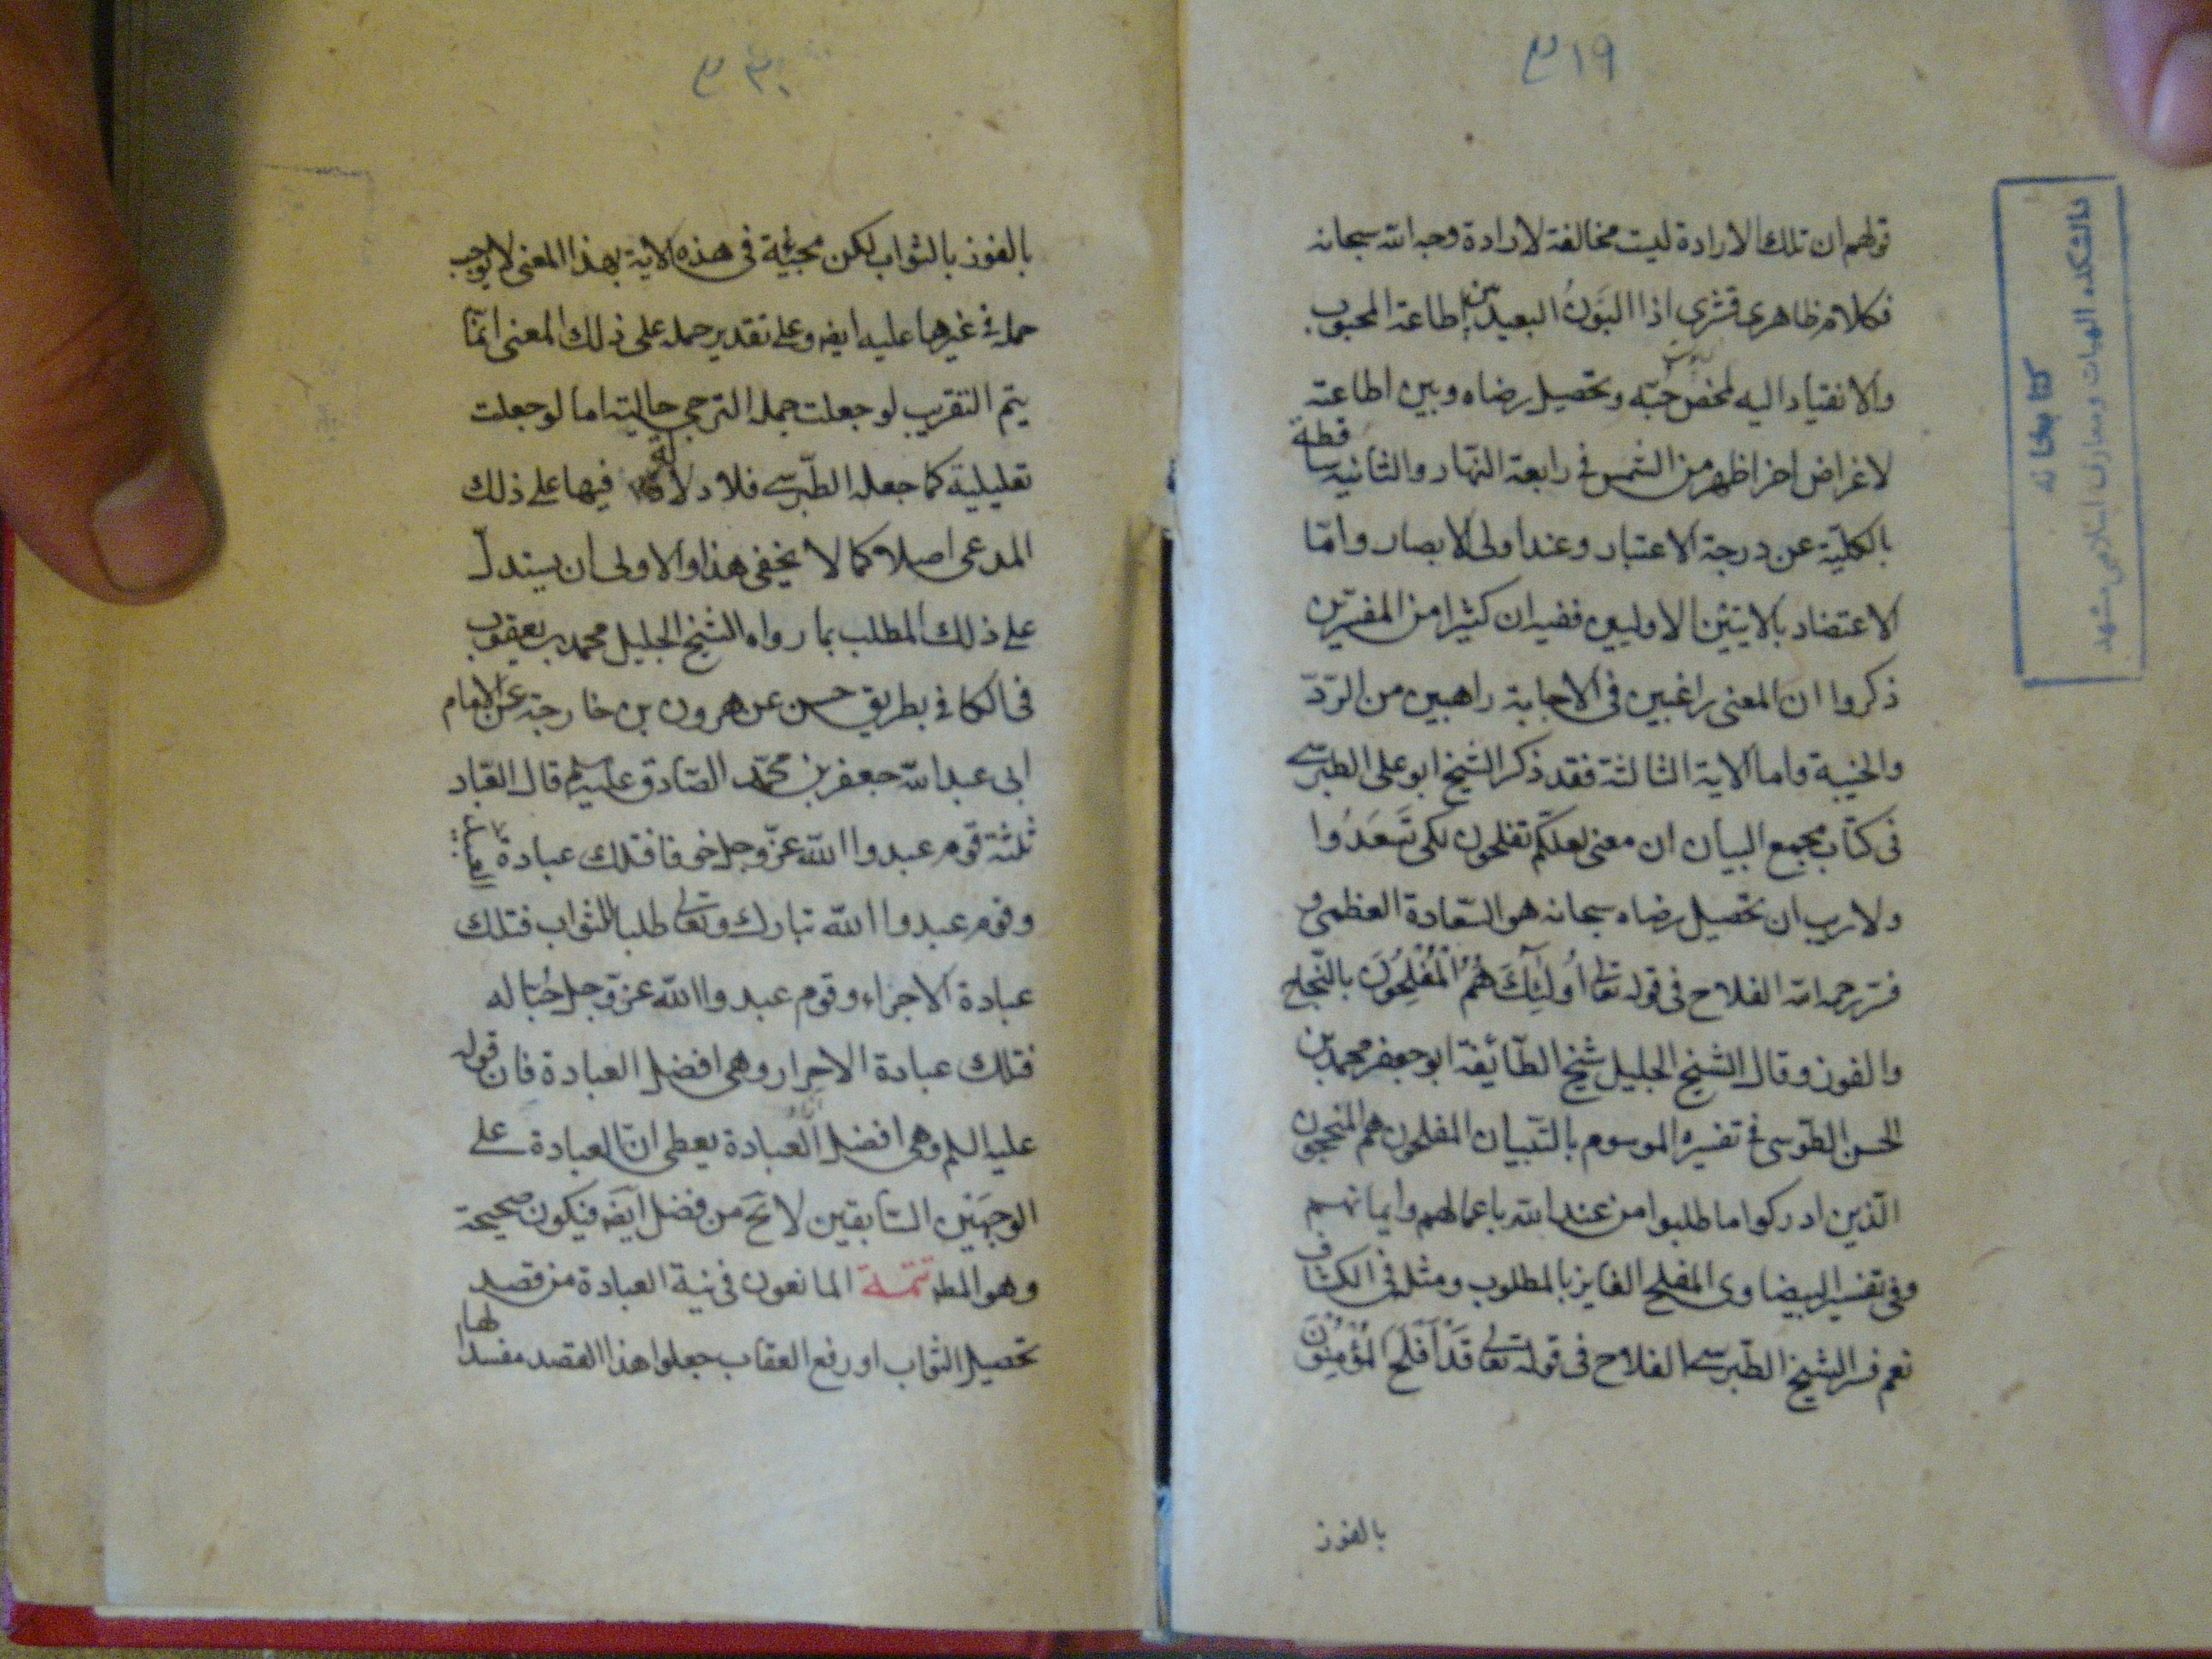 ٣١٩
قولهم ان تلك الارادة ليست مخالفة لارادة وجه الله سبحانه
فكلام ظاهرى قشرى اذا البَوَنُ البعيد بين اطاعة المحبوب
والانقياد اليه لمحض حُبّه وتحصيل رضاه وبين اطاعته
لاغراض اخر اظهر من الشمس فى رابعة النهار والثانيه ساقطة
بالكليّة عن درجة الاعتبار وعند اولى الابصار وامّا
الاعتضاد بالايتين الاوليين ففيه ان كثيرا من المفسّرين
ذكروا ان المعنى راغبين فى الاجابة راهبين من الرّدّ
والخيبة واما الاية الثالثة فقد ذكر الشيخ ابو على الطبرسى
فى كتاب مجمع البيان ان معنى لعلكم تفلحون لكى تَسعَدُوا
ولا ريب ان تحصيل رضاه سبحانه هو السّعادة العظمى و
فسّر رحمه الله الفلاح فى قوله تعالى اُولٰئِكَ هُمُ الْمُفْلِحُونَ بالنّجاح
والفوز وقال الشيخ الجليل شيخ الطّائفة ابو جعفر محمد بن
الحسن الطّوسى فى تفسيره الموسوم بالتّبيان المفلحون هم المنجحون
الّذين ادركوا ما طلبوا من عند الله باعمالهم وايمانهم
وفى تفسير البيضاوى المفلح الفايز بالمطلوب ومثله فى الكشّاف
نعم فسر الشيخ الطّبرسى الفلاح فى قوله تعالى قَدْ اَفْلَحَ الْمُؤْمِنُونَ
بالفوز
كتابخانه
دانشكده الهيات ومعارف اسلامى مشهد
٣٢٠
بالفوز بالثواب لكن مجيئه فى هذه الاية بهذا المعنى لا يوجب
حمله فى غيرها عليه ايضه وعلى تقدير حمله على ذلك المعنى انّما
يتم التقريب لو جعلت جمله الترجى حاليته اما لو جعلت
تعليلية كما جعله الطّبرسى فلا دلالة فيها على ذلك
المدعى اصلا كما لا يخفى هذا والاولى ان يستدلّ
على ذلك المطلب بما رواه الشيخ الجليل محمد بن يعقوب
فى الكافى بطريق حسن عن هرون بن خارجة عن الامام
ابى عبد الله جعفر بن محمّد الصّادق عليه السلم قال العبّاد
ثلثة قوم عبدوا الله عزّ وجل خوفا فتلك عبادة العبيد
وقوم عبدوا الله تبارك وتعالى طلبا للثواب فتلك
عبادة الاجراء وقوم عبدوا الله عزّ وجل حُبّا له
فتلك عبادة الاحرار وهى افضل العبادة فان قوله
عليه السلم وهى افضل العبادة يعطى انّ العبادة على
الوجهَين السّابقين لا تخ من فضل ايضَه فيكون صحيحة
وهو المطه تتمة المانعون فى نية العبادة من قصد
تحصيل الثواب او رفع العقاب جعلوا هذا القصد مفسدا لها